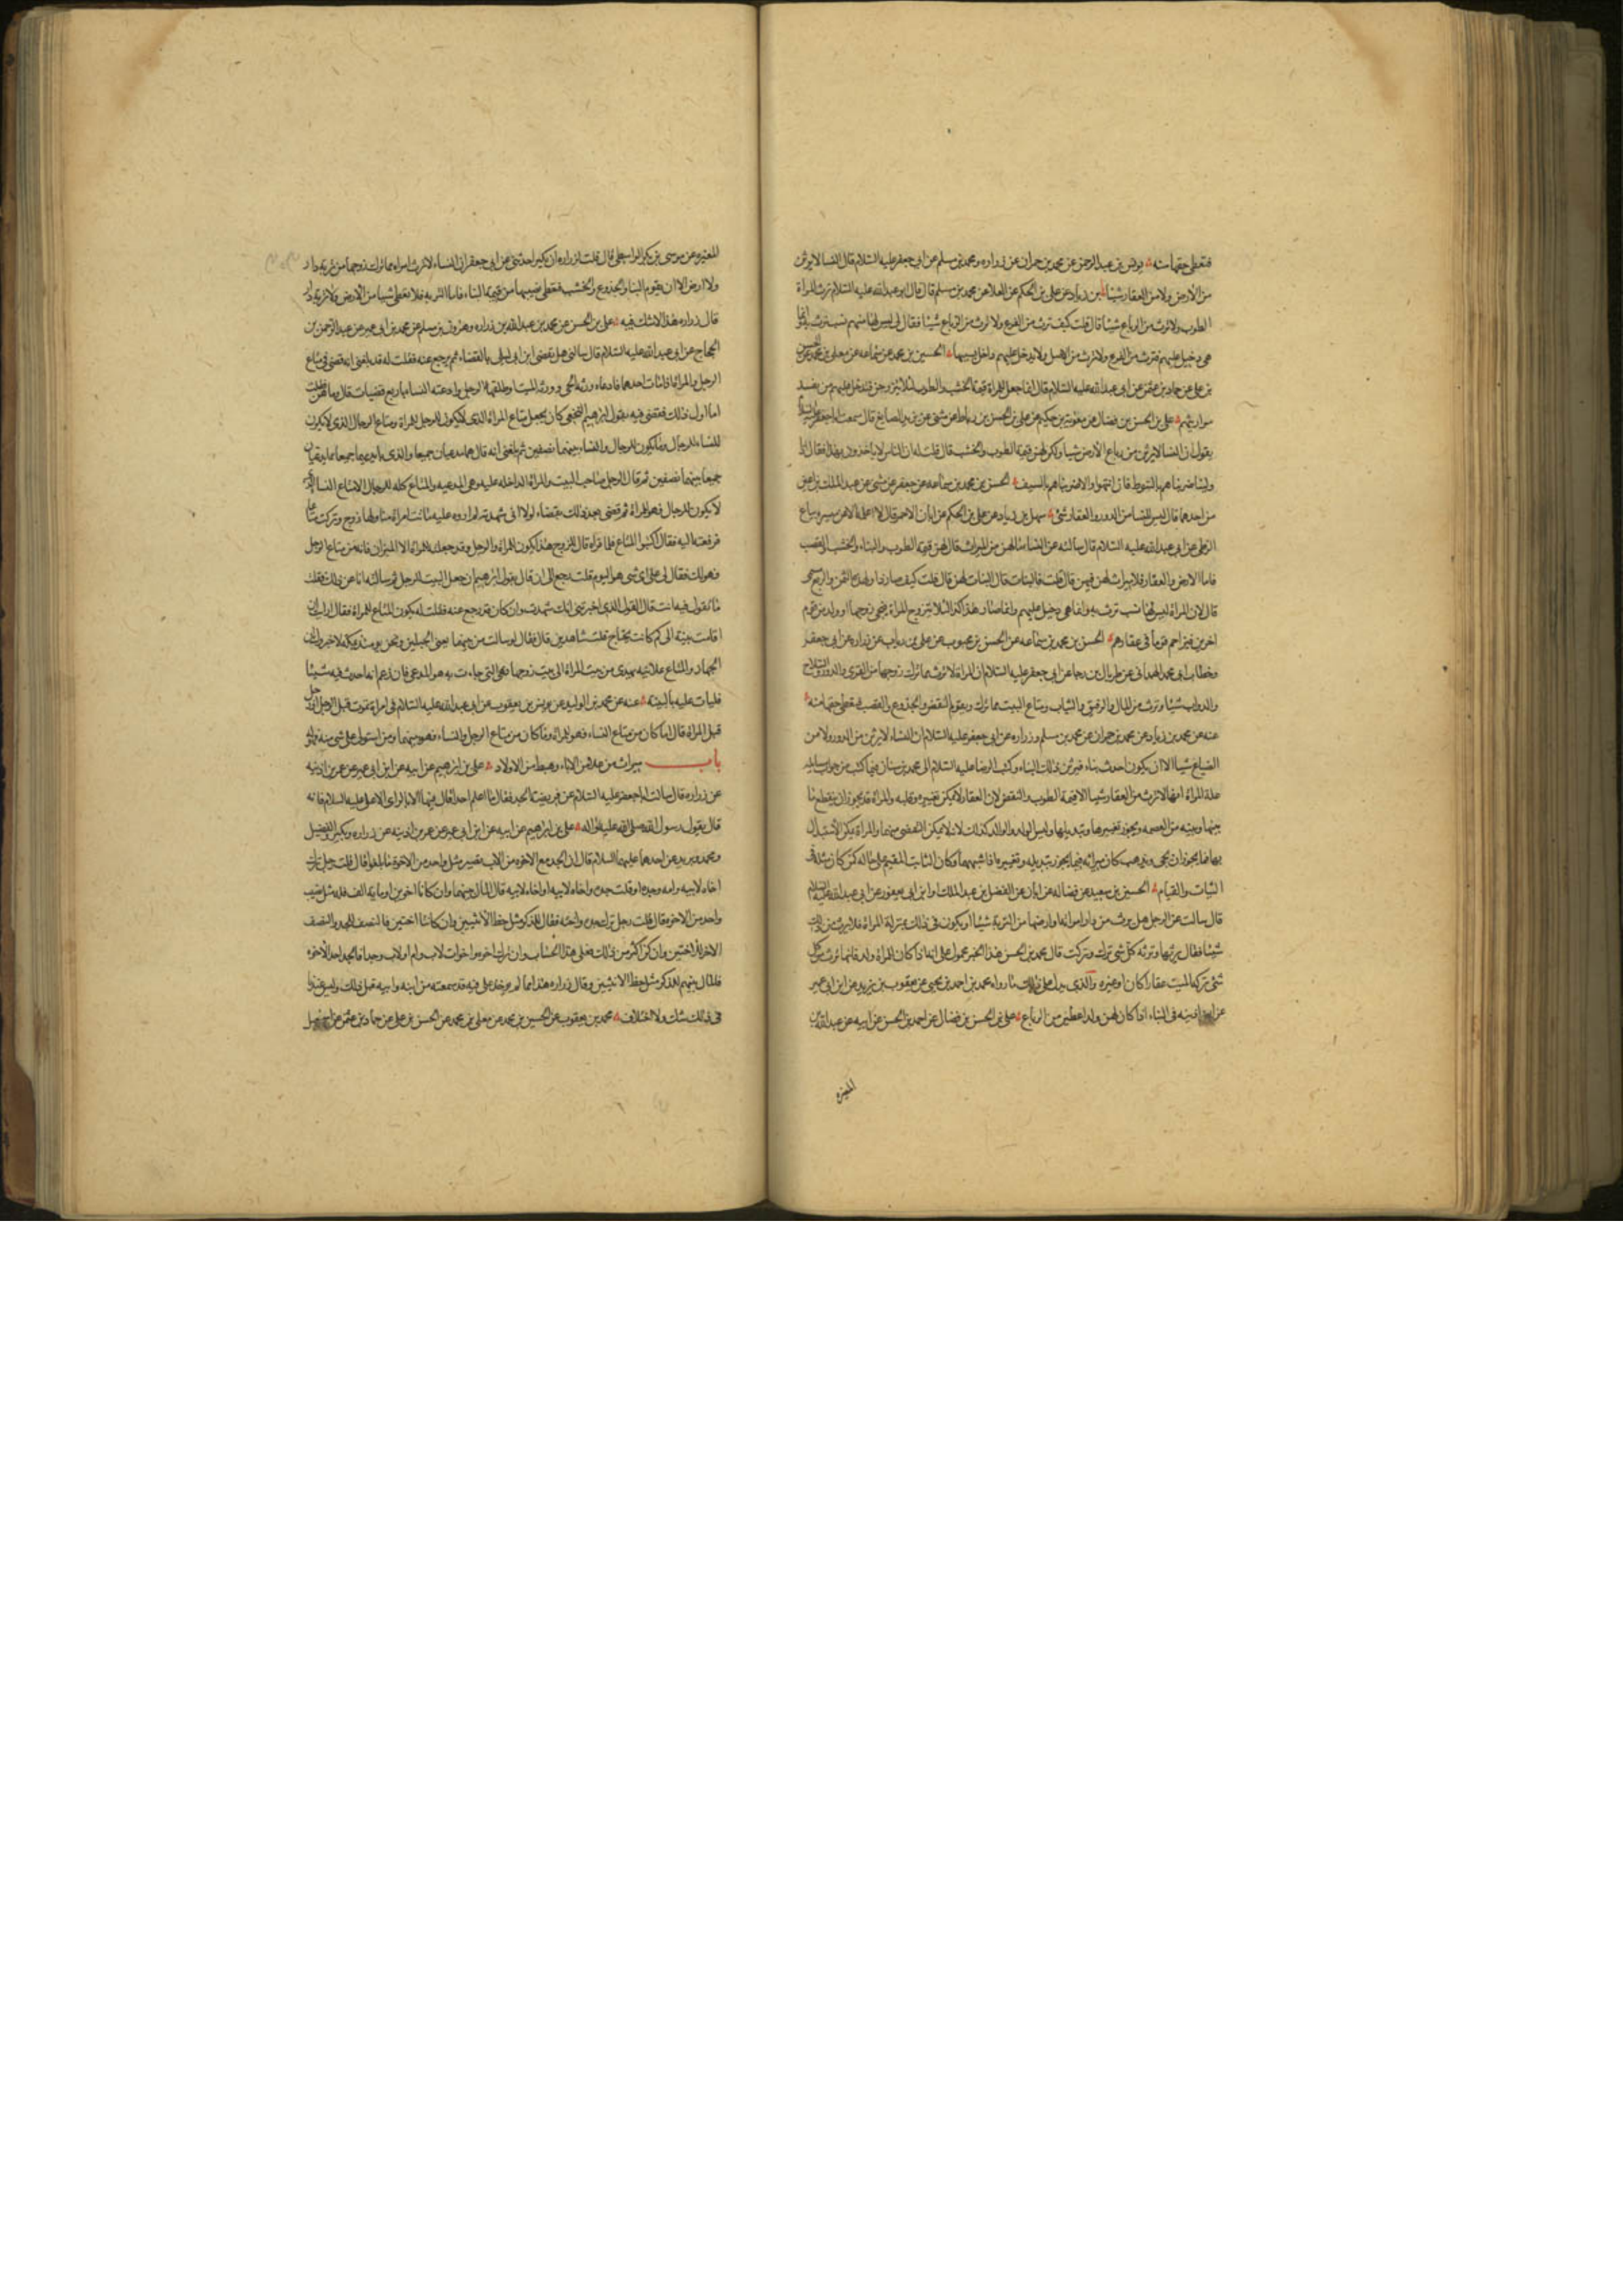 فتعطى حقها منه يونس بن عبد الرحمن عن محمد بن حمران عن زراره ومحمد بن مسلم عن ابى جعفر عليه السلام قال النسا لا يرثن
من الارض ولا من العقار شيئا بن زياد عن على بن الحكم عن العلا عن محمد بن مسلم قال قال ابو عبد الله عليه السلام ترث المراة
الطوب ولا ترث من الرباع شيئا قال قلت كيف ترث من الفرع ولا ترث من الرباع شيئا فقال لى ليس لها منهم نسب ترث به وانما
هى دخيل عليهم فترث من الفرع ولا ترث من الاصل ولا يدخل عليهم داخل بسببها الحسين بن محمد عن سماعه عن معلى بن محمد عن الحسن
بن على عن حماد بن عثمن عن ابى عبد الله عليه السلام قال انما جعل للمراة قيمة الخشب والطوب لئلا يتزوجن فتدخل عليهم من يفسد
مواريثهم على بن الحسن بن فضال عن معوية بن حكيم عن على بن الحسن بن رباط عن مثنى عن يزيد الصايغ قال سمعت ابا جعفر عليه السلام
يقول ان النسا لا يرثن من رباع الارض شيا ولكن لهن قيمة الطوب والخشب قال قلت له ان الناس لا ياخذون بهذا فقال اذا
ولينا ضربناهم بالسوط فان انتهوا والا ضربناهم بالسيف الحسن بن محمد بن سماعه عن جعفر عن مثنى عن عبد الملك بن اعين
من احدهما قال ليس للنسا من الدور والعقار شئ سهل بن زياد عن على بن الحكم عن ابان الاحمر قال لا اعلمه الا عن ميسر بياع
الزطى عن ابى عبد الله عليه السلام قال سالته عن النسا ما لهن من الميراث قال لهن قيمة الطوب والبناء والخشب والقصب
فاما الارض والعقار فلا ميراث لهن فيهن قال قلت فالبنات قال البنات لهن قال قلت كيف صار ذا ولهذه الثمن والربع مسمى
قال لان المراة ليس لها نسب ترث به وانما هى دخيل عليهم وانما صار هذا كذا لئلا تتزوج المراة فيجى زوجها او ولد من قوم
اخرين فيزاحم قوما فى عقارهم الحسن بن محمد بن سماعه عن الحسن بن محبوب عن على بن رياب عن زراره عن ابى جعفر
وخطاب ابى محمد الهمدانى عن طربال بن رجا عن ابى جعفر عليه السلام ان المراة لا ترث مما ترك زوجها من القرى والدور والسلاح
والدواب شيئا وترث من المال والرقيق والثياب ومتاع البيت مما ترك ويقوم النقض والجذوع والقصب فتعطى حقها منه
عنه عن محمد بن زياد عن محمد بن حمران عن محمد بن مسلم وزراره عن ابى جعفر عليه السلام ان النساء لا يرثن من الدور ولا من
الضياع شيئا الا ان يكون احدث بناء فيرثن ذلك البناء وكتب الرضا عليه السلام الى محمد بن سنان فيما كتب من جواب مسايله
علة المراة انها لا ترث من العقار شيئا الا قيمة الطوب والنقض لان العقار لا يمكن تغييره وقلبه والمراة قد يجوز ان ينقطع ما
بينها وبينه من العصمه ويجوز تغييرها وتبديلها وليس الولد والوالد كذلك لانه لا يمكن التفصى منهما والمراة يمكن الاستبدال
بها فما يجوز ان يجى ويذهب كان ميراثه فيما يجوز تبديله وتغييره اذا اشبهها وكان الثابت المقيم على حاله كمن كان مثله فى
الثبات والقيام الحسين بن سعيد عن فضاله عن ابان عن الفضل بن عبد الملك وابن ابى يعفور عن ابى عبد الله عليه السلام
قال سالت عن الرجل هل يرث من دار امراته او ارضها من التربة شيئا او يكون فى ذلك بمنزلة المراة فلا يرث من ذلك
شيئا فقال يرثها وترثه كل شى ترك وتركت قال محمد بن الحسن هذا الخبر محمول على انه اذا كان للمراة ولد فانها ترث من كل
شئ تركه الميت عقارا كان او غيره والذى يدل على ذلك ما رواه محمد بن احمد بن يحيى عن يعقوب بن يزيد عن ابن ابى عمير
عن ابن اذينه فى النساء اذا كان لهن ولد اعطين من الرباع على بن الحسن بن فضال عن احمد بن الحسن عن ابيه عن عبد الله بن
المغيره
المغيره عن موسى بن بكر الواسطى قال قلت لزراره ان بكيرا حدثنى عن ابى جعفر ان النساء لا ترث امراة مما ترك زوجها من تربة دار
ولا ارض الا ان يقوم البنا والجذوع والخشب فتعطى نصيبها من قيمة البناء فاما التربه فلا تعطى شيا من الارض ولا تربة دار
قال زراره هذا لا شك فيه على بن الحسن عن محمد بن عبد الله بن زراره وهرون بن مسلم عن محمد بن ابى عمير عن عبد الرحمن بن
الحجاج عن ابى عبد الله عليه السلام قال سالنى هل يقضى ابن ابى ليلى بالقضاء ثم يرجع عنه فقلت له قد بلغنى انه قضى فى متاع
الرجل والمراة اذا مات احدهما فادعاه ورثه الحى وورثه الميت او طلقها الرجل وادعته النساء باربع قضيات قال وما هن قلت
اما اول ذلك فقضى فيه بقول ابراهيم النخعى كان يجعل متاع المراة الذى لا يكون للرجل للمراة ومتاع الرجال الذى لا يكون
للنساء للرجال وما يكون للرجال والنساء بينهما نصفين ثم بلغنى انه قال هما مدعيان جميعا والذى بايديهما جميعا مما يدعيان
جميعا بينهما نصفين ثم قال الرجل صاحب البيت والمراة الداخله عليه وهى المدعيه والمتاع كله للرجال الا متاع النسا الذى
لا يكون للرجال فهو للمراة ثم قضى بعد ذلك بقضاء لولا انى شهدته لم اروه عليه ماتت امراة منا ولها زوج وتركت متاعا
فرفعته اليه فقال اكتبوا المتاع فلما قراه قال للزوج هذا يكون للمراة والرجل وقد جعلته للمراة الا الميزان فانه من متاع الرجل
فهو لك فقال لى على اى شى هو اليوم قلت رجع الى ان قال بقول ابراهيم ان جعل البيت للرجل ثم سالته انا عن ذلك فقلت
ما تقول فيه انت قال القول الذى اخبرتنى انك شهدت وان كان قد رجع عنه فقلت له يكون المتاع للمراة فقال ارايت ان
اقامت بينة الى كم كانت تحتاج قلت شاهدين قال فقال لو سالت من بينهما يعنى الجبلين ونحن يومئذ بمكه لاخبروك ان
الجهاز والمتاع علانيه يهدى من بيت المراة الى بيت زوجها فهى التى جاءت به وهو المدعى فان زعم انه احدث فيه شيئا
فليات عليه بالبينه عنه عن محمد بن الوليد عن يونس بن يعقوب عن ابى عبد الله عليه السلام فى امراة تموت قبل الرجل او رجل
قبل المراة قال ما كان من متاع النساء فهو للمراة وما كان من متاع الرجل والنساء فهو بينهما ومن استولى على شى منه فهو له
باب ميراث من علا من الاباء وهبط من الاولاد على بن ابراهيم عن ابيه عن ابن ابى عمير عن عمر بن اذينه
عن زراره قال سالت ابا جعفر عليه السلام عن فريضة الجد فقال ما اعلم احدا قال فيها الا بالراى الا على عليه السلام فانه
قال بقول رسول الله صلى الله عليه واله على بن ابراهيم عن ابيه عن ابن ابى عمير عن عمر بن اذينه عن زراره وبكير والفضيل
ومحمد وبريد عن احدهما عليهما السلام قال ان الجد مع الاخوه من الاب يصير مثل واحد من الاخوة ما بلغوا قال قلت رجل ترك
اخاه لابيه وامه وجده او قلت جده واخاه لابيه او اخاه لابيه قال المال بينهما وان كانا اخوين او مايه الف فله مثل نصيب
واحد من الاخوه قال قلت رجل ترك جده واخته فقال للذكر مثل حظ الانثيين وان كانتا اختين فالنصف للجد والنصف
الاخر للاختين وان كن اكثر من ذلك فعلى هذا الحساب وان ترك اخوه واخوات لاب وام او لاب وجد فالجد احد الاخوه
فالمال بينهم للذكر مثل حظ الانثيين وقال زراره هذا مما لم يوخذ على فيه قد سمعته من ابنه وابيه قبل ذلك وليس عندنا
فى ذلك شك ولا اختلاف محمد بن يعقوب عن الحسين بن محمد عن معلى بن محمد عن الحسن بن على عن حماد بن عثمن عن